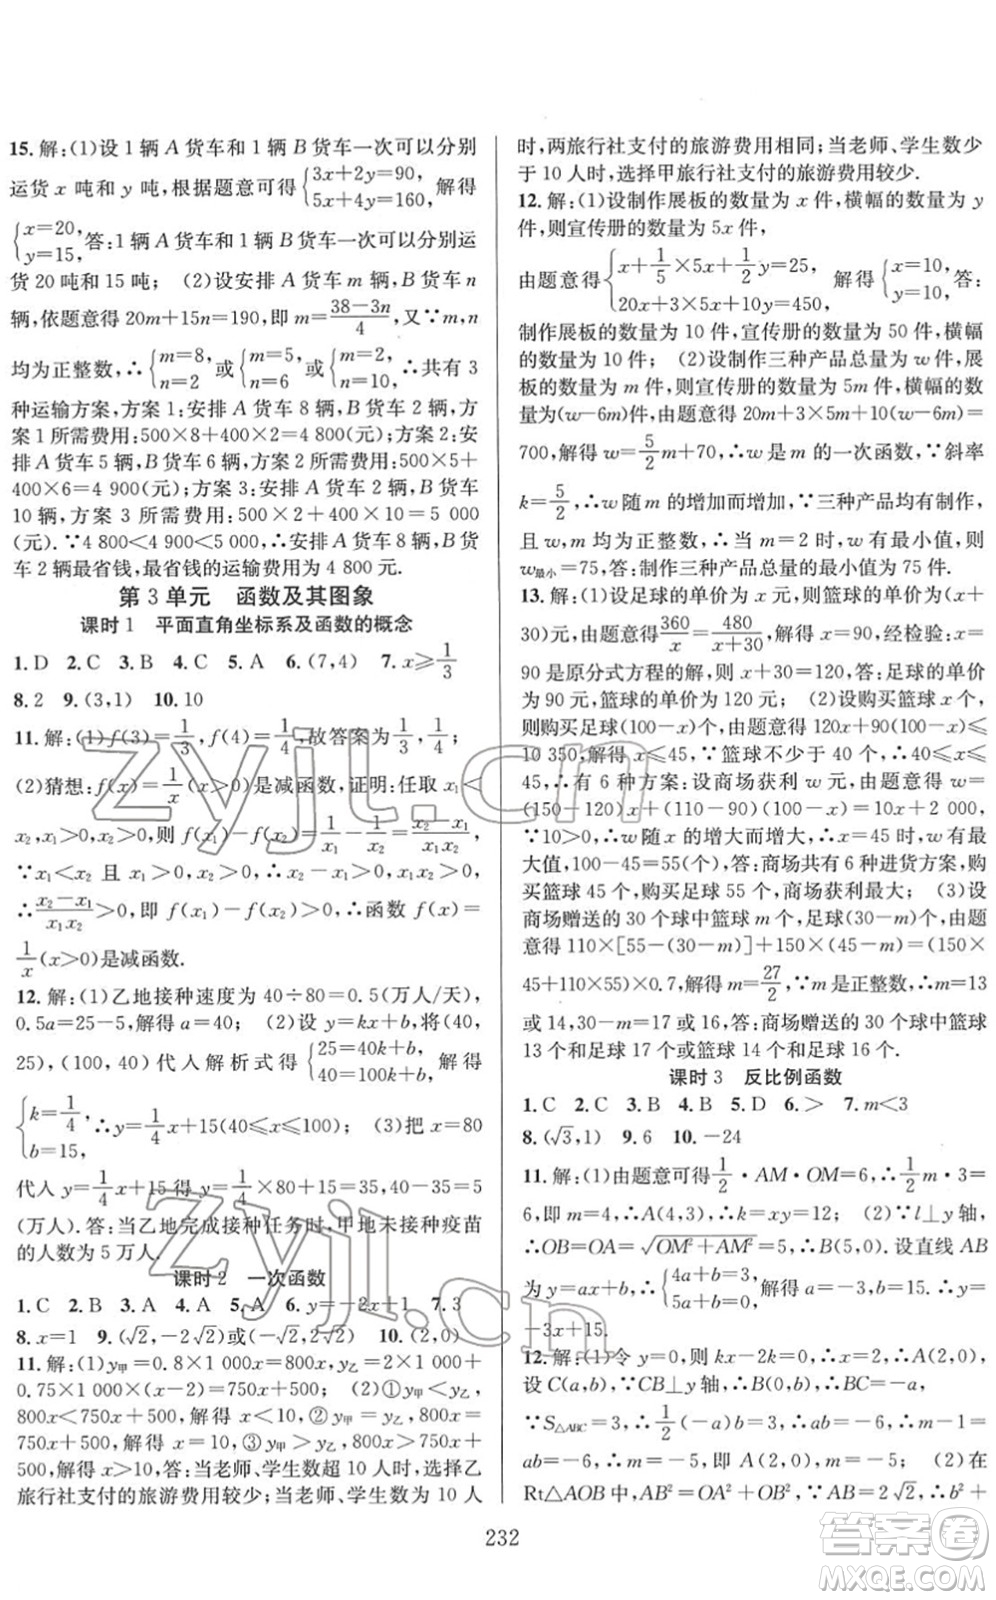 15. 解:(1)设 1 辆 A 货车和 1 辆 B 货车一次可以分别
运货 x 吨和 y 吨,根据题意可得{3x+2y=90, 5x+4y=160, 解得
{x=20, y=15, 答:1 辆 A 货车和 1 辆 B 货车一次可以分别运
货 20 吨和 15 吨; (2)设安排 A 货车 m 辆,B 货车 n
辆,依题意得 20m+15n=190,即 m=(38-3n)/4,又∵m,n
均为正整数,∴{m=8, n=2 或{m=5, n=6 或{m=2, n=10. ∴共有 3
种运输方案,方案 1:安排 A 货车 8 辆,B 货车 2 辆;
方案 1 所需费用:500×8+400×2=4 800(元);方案 2:安
排 A 货车 5 辆,B 货车 6 辆,方案 2 所需费用:500×5+
400×6=4 900(元);方案 3:安排 A 货车 2 辆,B 货车
10 辆,方案 3 所需费用:500×2+400×10=5 000
(元).∵4 800<4 900<5 000,∴安排 A 货车 8 辆,B 货
车 2 辆最省钱,最省钱的运输费用为 4 800 元.
第 3 单元 函数及其图象
课时 1 平面直角坐标系及函数的概念
1. D 2. C 3. C 4. C 5. A 6. (7,4) 7. x≥1/3
8. 2 9. (3,1) 10. 10
11. 解:(1)f(3)=1/3,f(4)=1/4,故答案为1/3,1/4;
(2)猜想:f(x)=1/x(x>0)是减函数,证明:任取 x₁<
x₂,x₁>0,x₂>0,则 f(x₁)-f(x₂)=1/x₁-1/x₂=(x₂-x₁)/(x₁x₂),
∵x₁<x₂ 且 x₁>0,x₂>0,∴x₂-x₁>0,x₁x₂>0,
∴(x₂-x₁)/(x₁x₂)>0,即 f(x₁)-f(x₂)>0,∴函数 f(x)=
1/x(x>0)是减函数.
12. 解:(1)乙地接种速度为 40÷80=0.5(万人/天),
0.5a=25-5,解得 a=40; (2)设 y=kx+b,将(40,
25),(100,40)代入解析式得{25=40k+b, 40=100k+b, 解得
{k=1/4, b=15, ∴y=1/4x+15(40≤x≤100); (3)把 x=80
代入 y=1/4x+15 得 y=1/4×80+15=35,40-35=5
(万人).答:当乙地完成接种任务时,甲地未接种疫苗
的人数为 5 万人.
课时 2 一次函数
1. C 2. B 3. A 4. A 5. A 6. y=-2x+1 7. 3
8. x=1 9. (√2,-2√2)或(-√2,2√2) 10. (2,0)
11. 解:(1)y甲=0.8×1 000x=800x,y乙=2×1 000+
0.75×1 000×(x-2)=750x+500; (2)①y甲<y乙,
800x<750x+500,解得 x<10,②y甲=y乙,800x=
750x+500,解得 x=10,③y甲>y乙,800x>750x+
500,解得 x>10,答:当老师、学生数超 10 人时,选择乙
旅行社支付的旅游费用较少;当老师、学生数为 10 人
时,两旅行社支付的旅游费用相同;当老师、学生数少
于 10 人时,选择甲旅行社支付的旅游费用较少.
12. 解:(1)设制作展板的数量为 x 件,横幅的数量为 y
件,则宣传册的数量为 5x 件,
由题意得{x+1/5×5x+1/2y=25, 20x+3×5x+10y=450, 解得{x=10, y=10. 答:
制作展板的数量为 10 件,宣传册的数量为 50 件,横幅
的数量为 10 件; (2)设制作三种产品总量为 w 件,展
板的数量为 m 件,则宣传册的数量为 5m 件,横幅的数
量为(w-6m)件,由题意得 20m+3×5m+10(w-6m)=
700,解得 w=5/2m+70,∴w 是 m 的一次函数,∵斜率
k=5/2,∴w 随 m 的增加而增加,∵三种产品均有制作,
且 w,m 均为正整数,∴当 m=2 时,w 有最小值,则
w最小=75,答:制作三种产品总量的最小值为 75 件.
13. 解:(1)设足球的单价为 x 元,则篮球的单价为(x+
30)元,由题意得360/x=480/(x+30),解得:x=90,经检验:x=
90 是原分式方程的解,则 x+30=120,答:足球的单价
为 90 元,篮球的单价为 120 元; (2)设购买篮球 x 个,
则购买足球(100-x)个,由题意得 120x+90(100-x)≤
10 350,解得:x≤45,∵篮球不少于 40 个,∴40≤x≤
45,∴有 6 种方案;设商场获利 w 元,由题意得 w=
(150-120)x+(110-90)(100-x)=10x+2 000,
∵10>0,∴w 随 x 的增大而增大,∴x=45 时,w 有最
大值,100-45=55(个),答:商场共有 6 种进货方案,购
买篮球 45 个,购买足球 55 个,商场获利最大; (3)设
商场赠送的 30 个球中篮球 m 个,足球(30-m)个,由题
意得 110×[55-(30-m)]+150×(45-m)=(150×
45+110×55)×0.7,解得 m=27/2,∵m 是正整数,∴m=13
或 14,30-m=17 或 16,答:商场赠送的 30 个球中篮球
13 个和足球 17 个或篮球 14 个和足球 16 个.
课时 3 反比例函数
1. C 2. C 3. B 4. B 5. D 6. > 7. m<3
8. (√3,1) 9. 6 10. -24
11. 解:(1)由题意可得1/2·AM·OM=6,∴1/2m·3=
6,即 m=4,∴A(4,3),∴k=xy=12; (2)∵l⊥y 轴,
∴OB=OA=√(OM²+AM²)=5,∴B(5,0).设直线 AB
为 y=ax+b,∴{4a+b=3, 5a+b=0, 解得 a=-3,b=15.∴y=
-3x+15.
12. 解:(1)令 y=0,则 kx-2k=0,∴x=2,∴A(2,0),
设 C(a,b),∵CB⊥y 轴,∴B(0,b),∴BC=-a,
∵S△ABC=3,∴1/2(-a)b=3,∴ab=-6,∴m-1=
ab=-6,∴m=-5,即 A(2,0),m=-5; (2)在
Rt△AOB 中,AB²=OA²+OB²,∵AB=2√2,∴b²+
232
zyjl.cn
zyjl.cn
答案圈
MXQE.COM